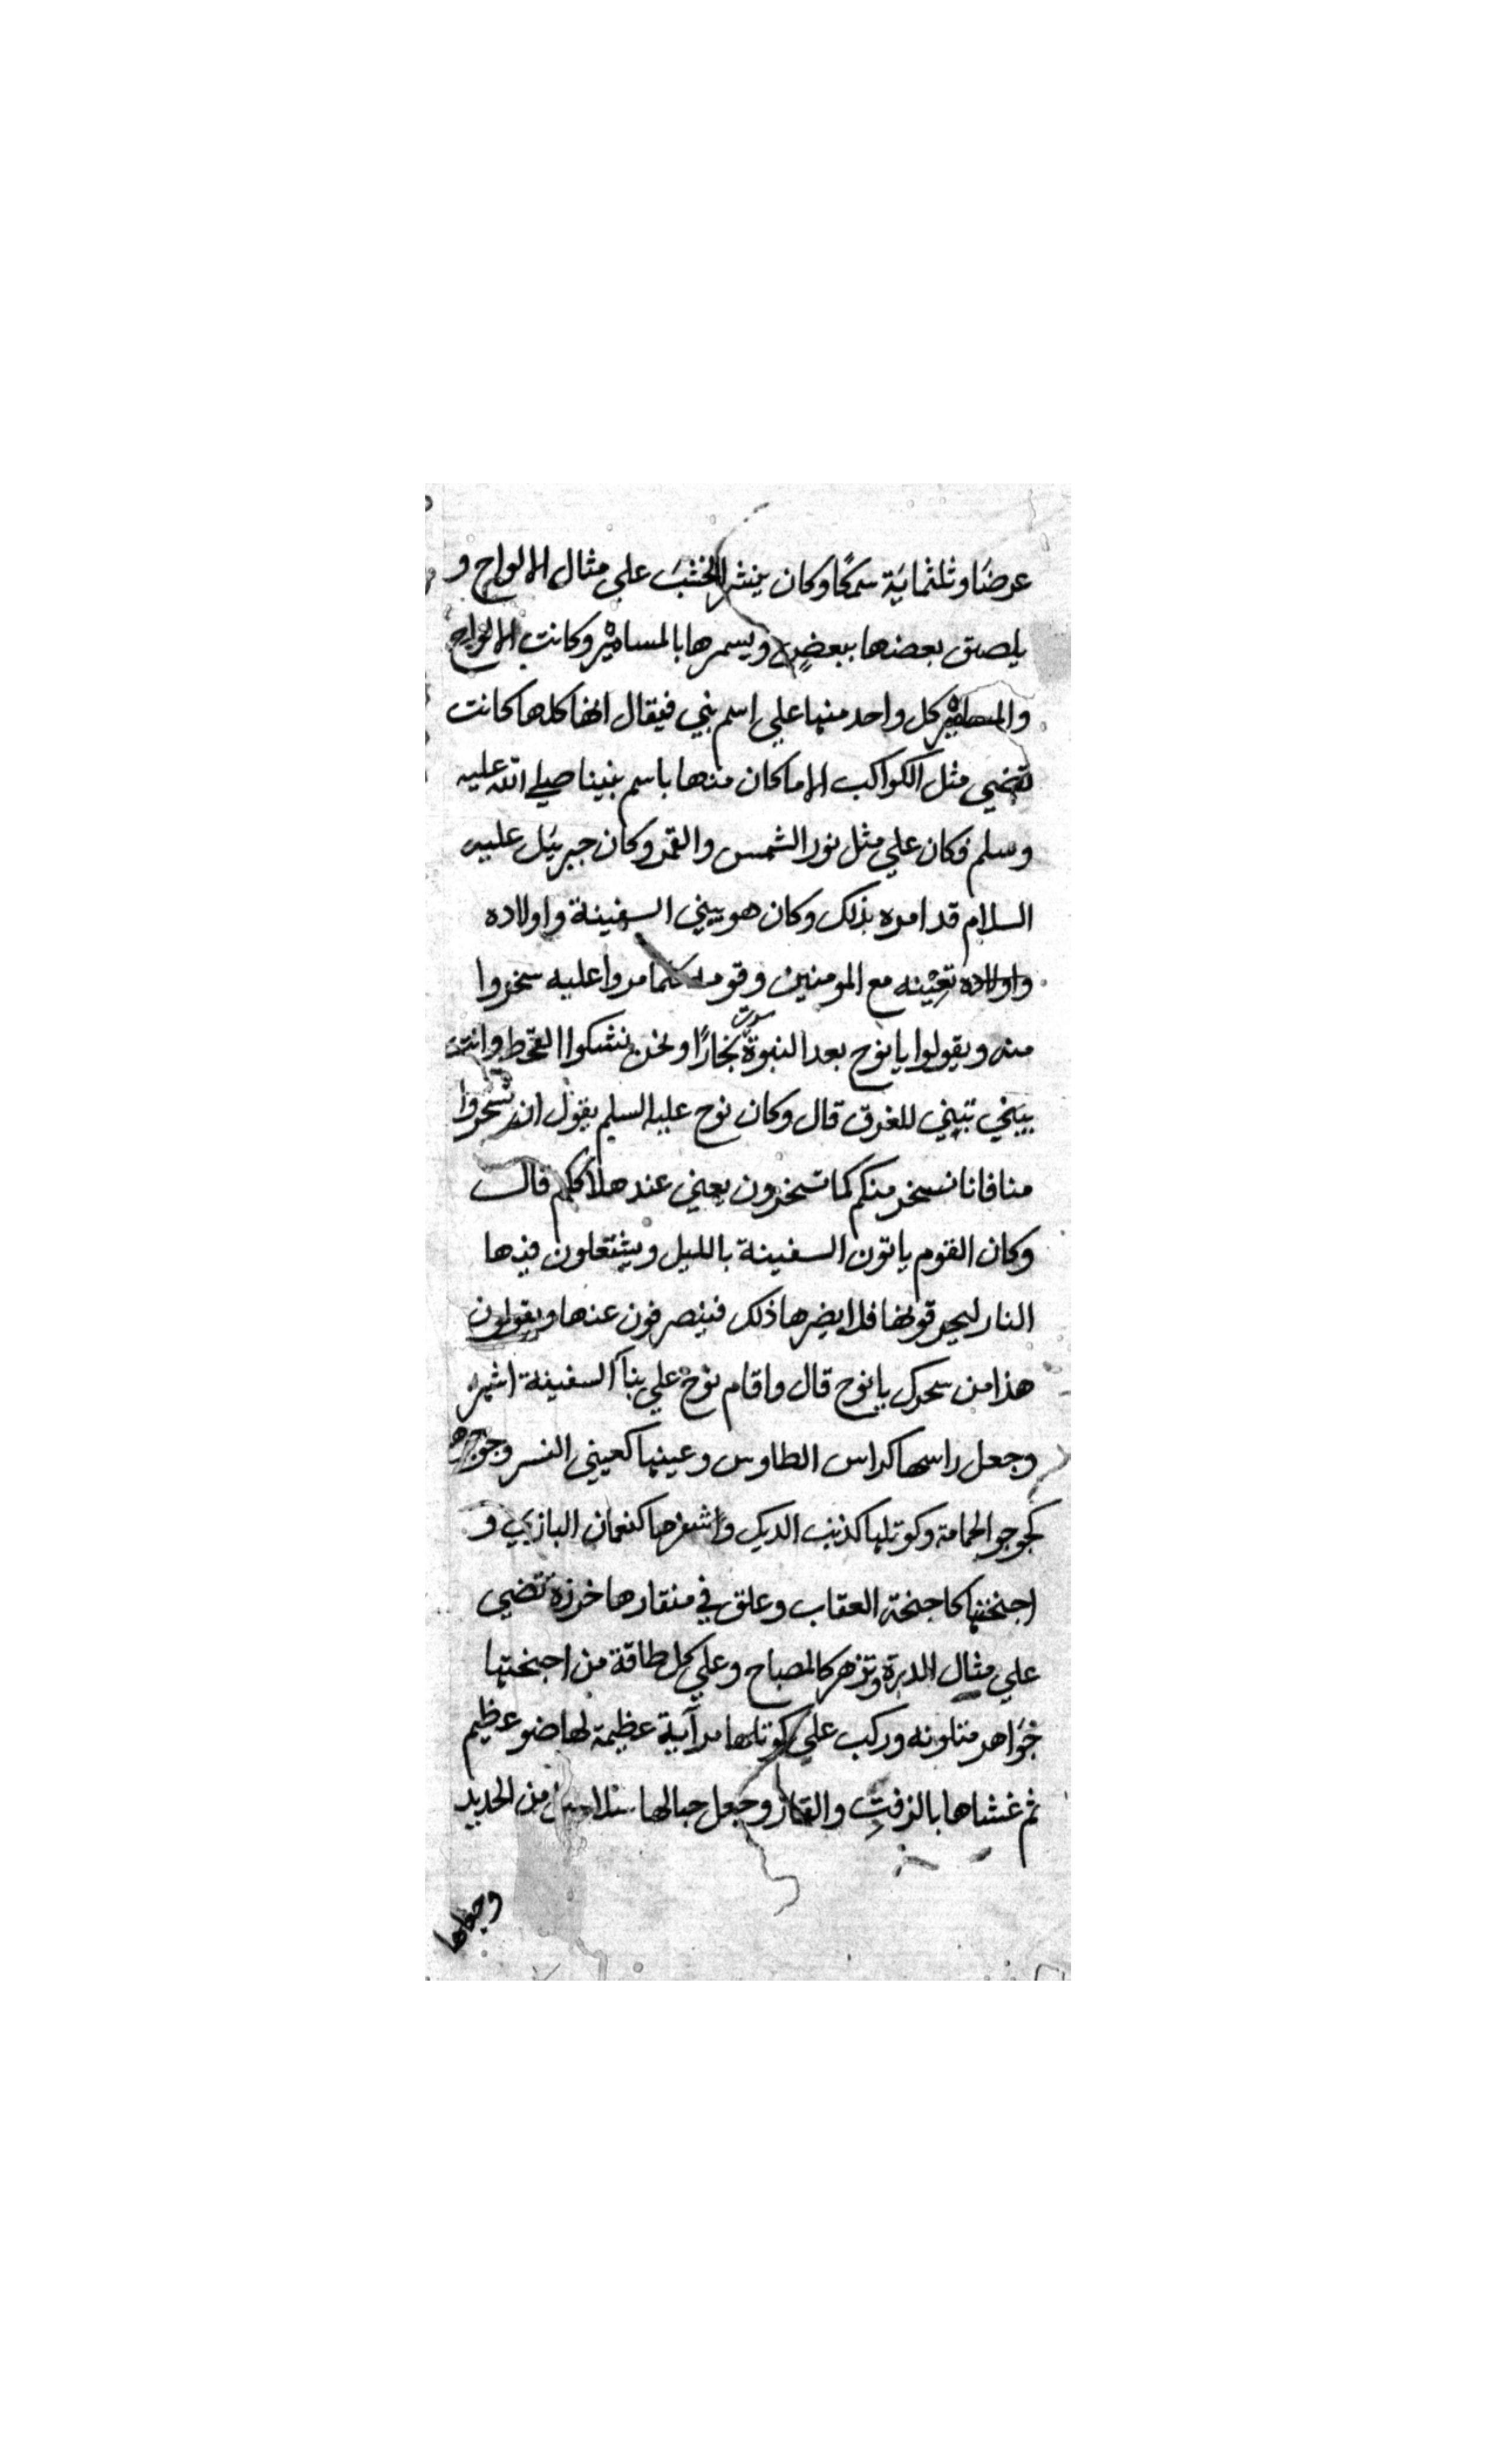 عرضا وثلثماية سمكا وكان ينشر الخشب علي مثال الالواح و
يلصق بعضها ببعض ويسمرها بالمسامير وكانت الالواح
والمسامير كل واحد منها علي اسم نبي فيقال انها كلها كانت
تضي مثل الكواكب الا ما كان منها باسم نبينا صلي الله عليه
وسلم فكان علي مثل نور الشمس والقمر وكان جبريل عليه
السلام قد امره بذلك وكان هو يبني السفينة واولاده
واولاده تعينه مع المومنين وقومه كلما مروا عليه سخروا
منه ويقولوا يا نوح بعد النبوة صرت نجارا ونحن نشكوا القحط وانت
تبني للغرق قال وكان نوح عليه السلم يقول ان تسخروا
منا فانا نسخر منكم كما تسخرون يعني عند هلاككم قال
وكان القوم ياتون السفينة بالليل ويشتعلون فيها
النار ليحرقونها فلا يضرها ذلك فينصرفون عنها ويقولون
هذا من سحرك يا نوح قال واقام نوح علي بنآ السفينة اشهر
وجعل راسها كراس الطاوس وعينها كعيني النسر وجوجوها
كجوجو الحمامة وكوتلها كذنب الديك البازي و
اجنحتها كاجنحة العقاب وعلق في منقارها خرزة تضي
علي مثال الدرة وتزهر كالمصباح وعلي كل طاقة من اجنحتها
جواهر متلونه وركب علي كوتلها مرآية عظيمة لها ضو عظيم
ثم غشاها بالزفت والقار وجعل حبالها سلاسل من الحديد
وجعلها